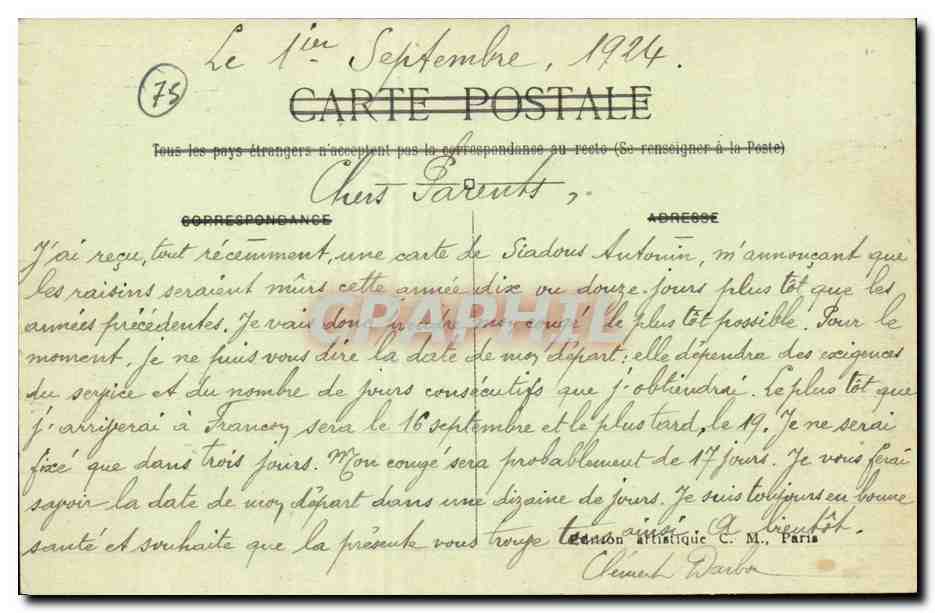 Le 1ier Septembre, 1924.
75
CARTE POSTALE
Tous les pays étrangers n'acceptent pas la correspondance au recto (Se renseigner à la Poste)
Chers Parents,
CORRESPONDANCE
ADRESSE
J'ai reçu, tout récemment, une carte de Siadous Antonin, m'annonçant que
les raisins seraient mûrs cette année dix ou douze jours plus tôt que les
années précédentes. Je vais donc prendre mon congé le plus tôt possible. Pour le
moment, je ne puis vous dire la date de mon départ; elle dépendra des exigences
du service et du nombre de jours consécutifs que j'obtiendrai. Le plus tôt que
j'arriverai à Francon sera le 16 septembre et le plus tard, le 19. Je ne serai
fixé que dans trois jours. Mon congé sera probablement de 17 jours. Je vous ferai
savoir la date de mon départ dans une dizaine de jours. Je suis toujours en bonne
santé et souhaite que la présente vous trouve tous ainsi. A bientôt.
Edition artistique C. M., Paris
Clément
CPAPHIL